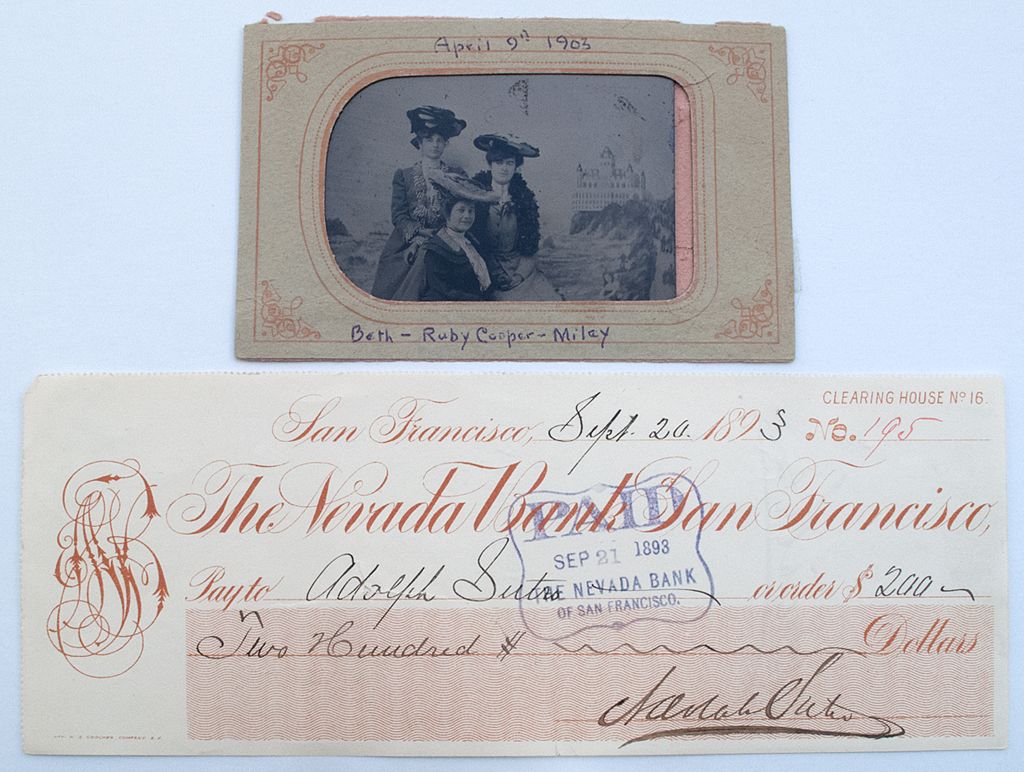 April 9th 1903
Beth - Ruby Cooper - Miley
CLEARING HOUSE No 16.
San Francisco, Sept. 20. 1893 No. 195
The Nevada Bank San Francisco,
PAID
SEP 21 1893
THE NEVADA BANK
OF SAN FRANCISCO.
Pay to Adolph Sutro or order $ 200
Two Hundred $ Dollars
Sutro